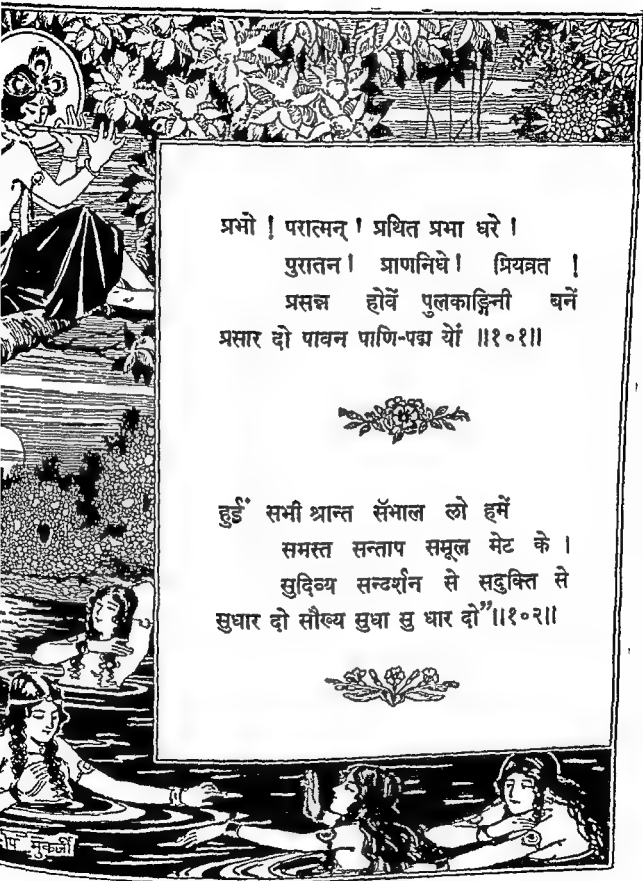 प्रभो ! परात्मन् ! प्रथित प्रभा धरे ।
पुरातन । प्राणनिधे । प्रियव्रत !
प्रसन्न होवें पुलकाङ्गिनी बनें
प्रसार दो पावन पाणि-पद्म यों ॥१०१॥
हुईं सभी श्रान्त सँभाल लो हमें
समस्त सन्ताप समूल मेट के ।
सुदिव्य सन्दर्शन से सदुक्ति से
सुधार दो सौख्य सुधा सु धार दो” ॥१०२॥
मुकर्जी